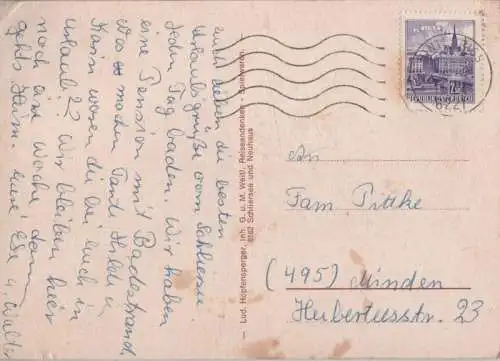 euch lieben die besten
Urlaubsgrüße vom Schliersee.
Jeden Tag baden. Wir haben
eine Pension mit Badestrand.
Wo machen Tante Hilde u.
Karin waren die bei euch in
Urlaub?? Wir bleiben hier
noch eine Woche dann
gehts Heim. eure Else u. Walter
Lud. Hopfensperger, Inh. G. u. M. Weitl, Reiseandenken - Spielwaren,
8162 Schliersee und Neuhaus
An
Fam Pittke
(495) Minden
Herbertusstr. 23